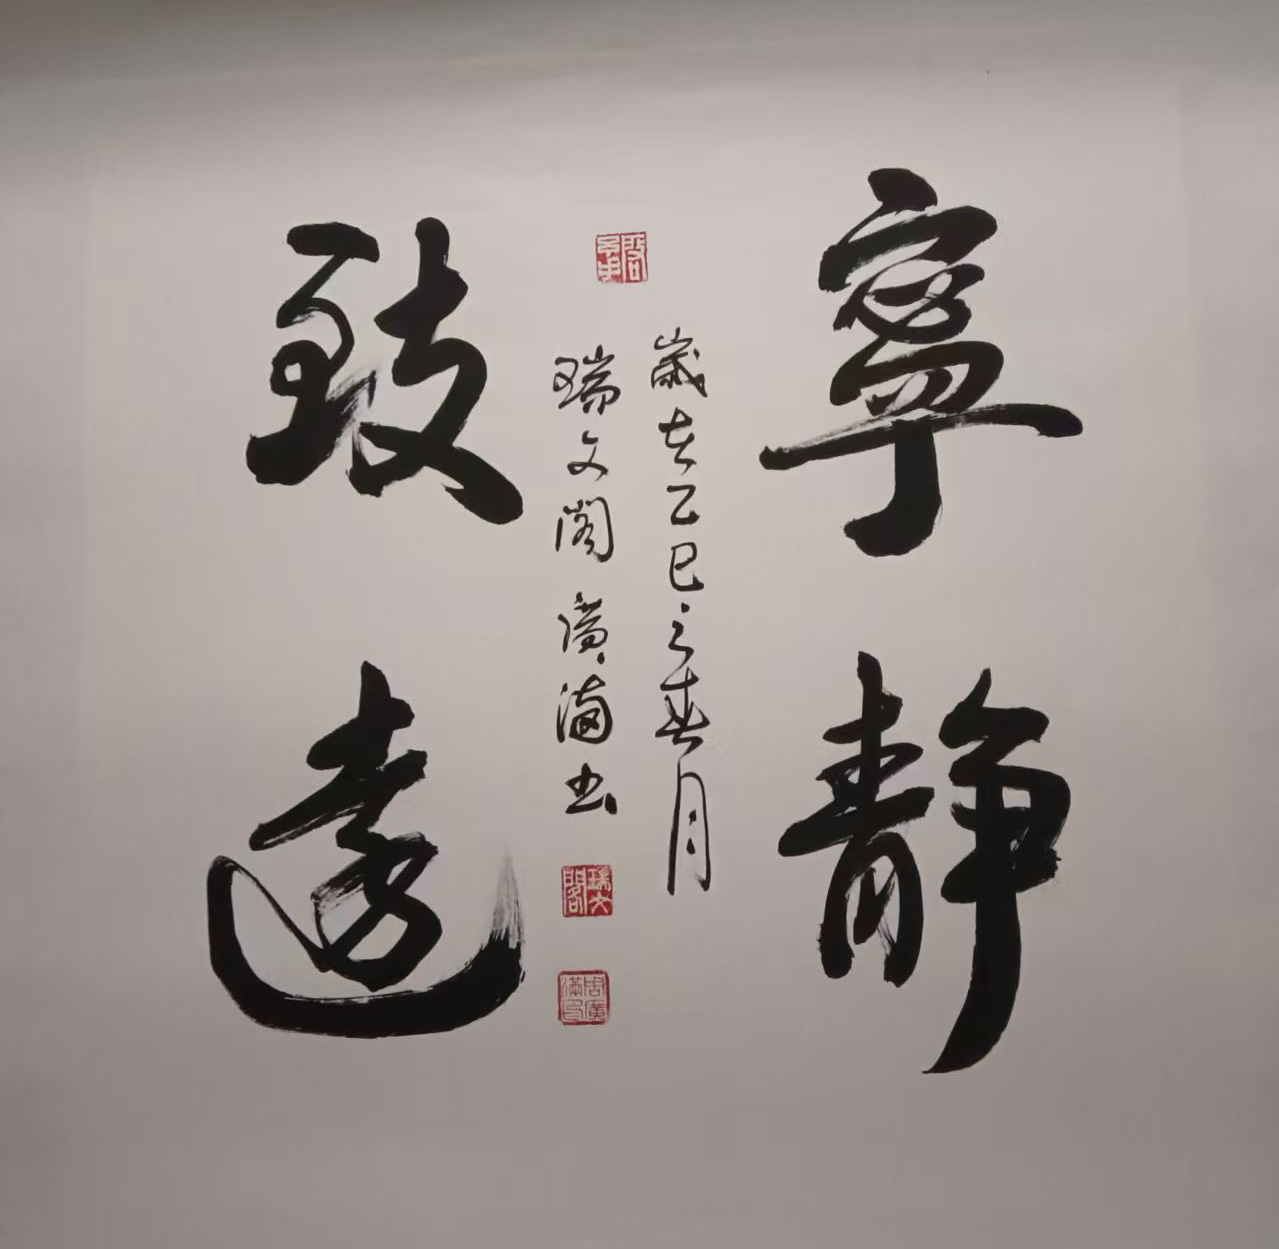 寧靜
致遠
歲在乙巳之春月
瑞文閣廣滿书
瑞文閣
周廣滿印